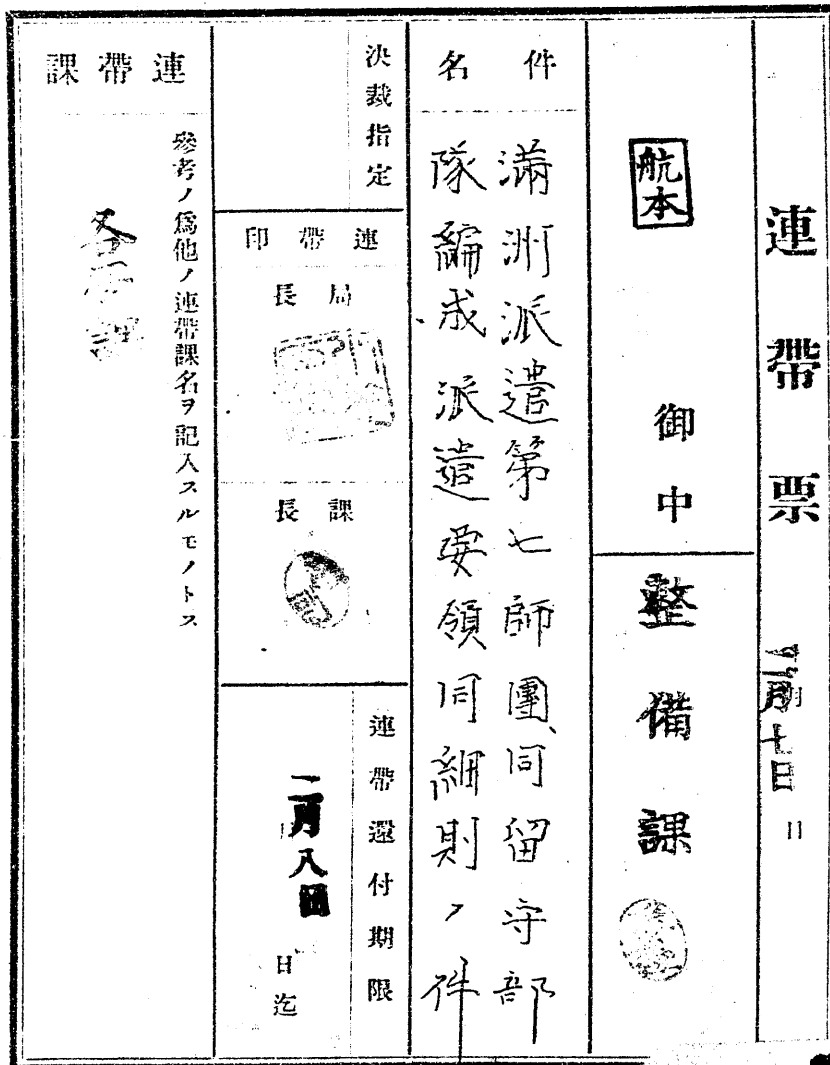 連帶票
月十日
日
航本
御中
整備課
件名
滿洲派遣第七師團、同留守部
隊編成派遣要領同細則ノ件
決裁指定
連帶印
局長
課長
連帶還付期限
二月八日
日迄
連帶課
參考ノ爲他ノ連帶課名ヲ記入スルモノトス